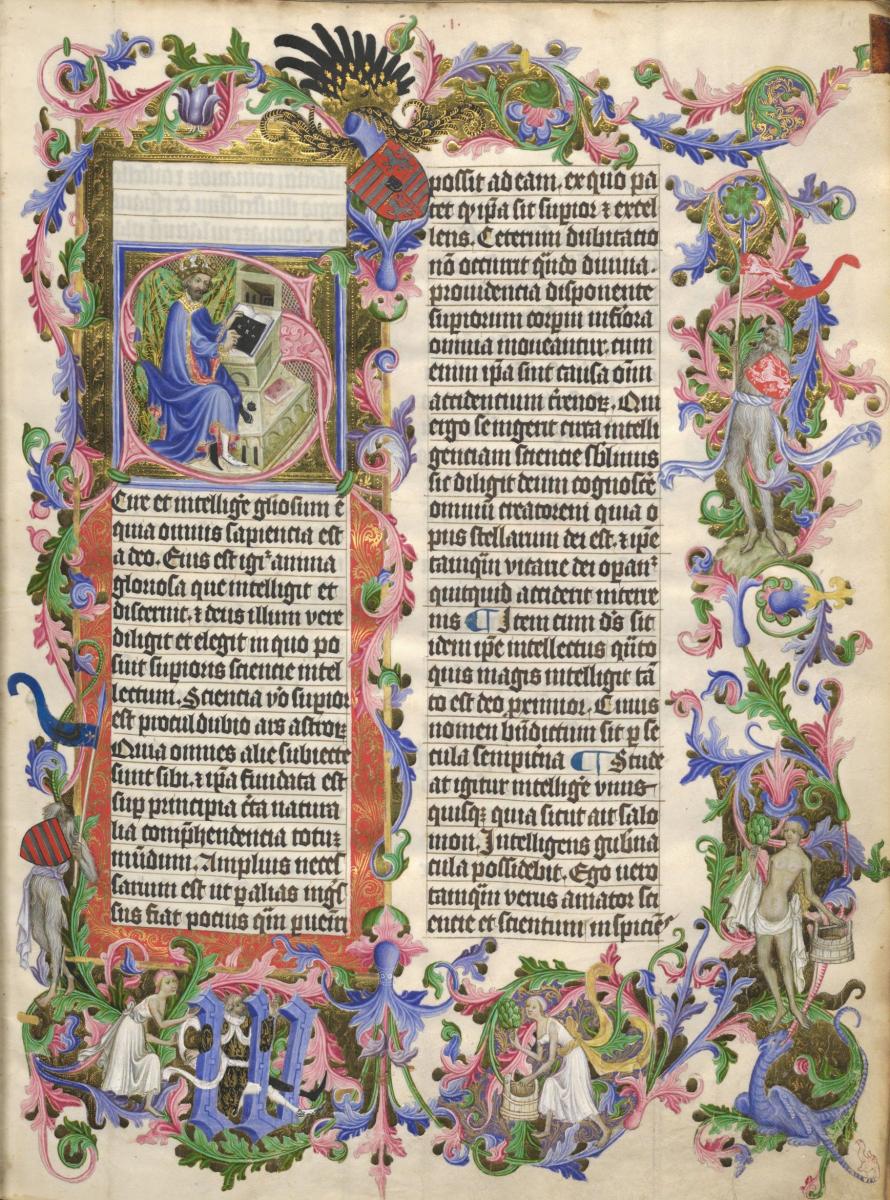 Cire et intellige gliosum e
quia omnis sapiencia est
a deo. Eius est igr anima
gloriosa que intelligit et
discernit. ⁊ deus illum vere
diligit et elegit in quo po
suit supioris sciencie intel
lectum. Sciencia vo supior
est procul dubio ars astroꝝ
Quia omnes alie subiecte
sunt sibi. ⁊ ipa fundata est
sup principia cta natura
lia comphendencia totuꝫ
mudum. Amplius neces
sarum est ut p alias mgs
sus fiat pocius qm
possit ad eam. ex quo pa
tet qꝫ ipa sit supior ⁊ excel
lens. Ceterum dubitacio
no occurit qndo diuina
prouidencia disponente
supiorum corpm infiora
omnia moueantur. cum
enim ipa sint causa oim
accidencium Qui
ergo se ingerit cura intelli
genciam sciencie sblimius
sic diligit deum cognosce
omniu creatorem quia o
pus stellarum dei est. ⁊ ipe
tamqm vicarie dei opant
quitquid accident in terre
nis ¶ Item cum ds sit
idem ipe intellectus qnto
quis magis intelligit ta
to est deo pximior. Cuius
nomen bndictum sit p se
cula sempitna ¶ Stude
at igitur intellige vnus
quisqꝫ quia sicut ait salo
mon. Intelligens gubna
cula possidebit. Ego uero
tamqm verus amator sci
encie et scientum inspicies
W